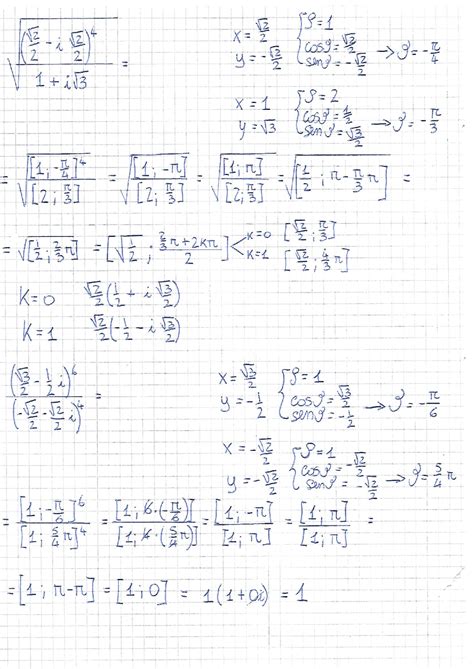 √( (√2/2 - i √2/2)^4 / (1 + i√3) ) =
x = √2/2 { ρ = 1
y = -√2/2 { cosϑ = √2/2
senϑ = -√2/2 → ϑ = -π/4
x = 1 { ρ = 2
y = √3 { cosϑ = 1/2
senϑ = √3/2 → ϑ = -π/3
= √( [1; -π/4]^4 / [2; π/3] ) = √( [1; -π] / [2; π/3] ) = √( [1; π] / [2; π/3] ) = √[1/2; π - π/3 π] =
= √[1/2; 2/3 π] = [√1/2; (2/3 π + 2kπ)/2] < k=0 [√2/2; π/3]
k=1 [√2/2; 4/3 π]
K = 0 √2/2 (1/2 + i √3/2)
K = 1 √2/2 (-1/2 - i √3/2)
(√3/2 - 1/2 i)^6 / (-√2/2 - √2/2 i)^4 =
x = √3/2 { ρ = 1
y = -1/2 { cosϑ = √3/2
senϑ = -1/2 → ϑ = -π/6
x = -√2/2 { ρ = 1
y = -√2/2 { cosϑ = -√2/2
senϑ = -√2/2 → ϑ = 5/4 π
= [1; -π/6]^6 / [1; 5/4 π]^4 = [1; 6·(-π/6)] / [1; 4·(5/4 π)] = [1; -π] / [1; π] = [1; π] / [1; π] =
= [1; π - π] = [1; 0] = 1(1+0i) = 1